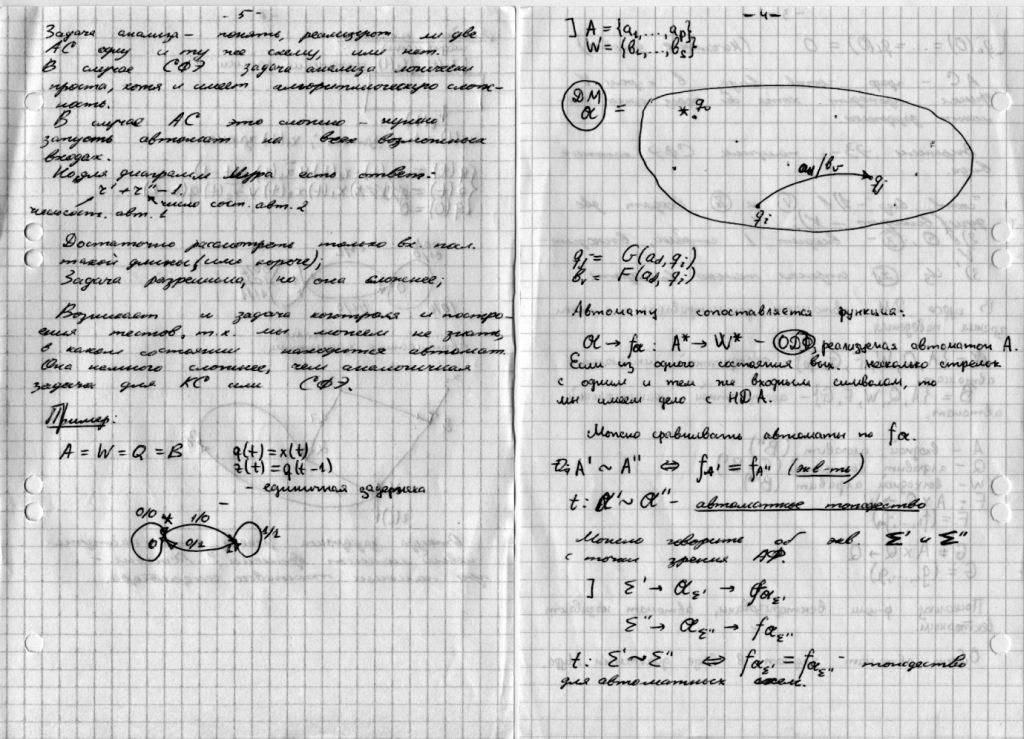 - 5 -
Задача анализа - понять, реализуют ли две
АС одну и ту же схему, или нет.
В случае СФЭ задача анализа логически
проста, хотя и имеет алгоритмическую слож-
ность.
В случае АС это сложно - нужно
запусть автомат на всех возможных
входах.
Но для диаграмм Мура есть ответ:
r' + r'' - 1.
число сост. авт. 1
число сост. авт. 2
Достаточно рассмотреть только вх. посл.
такой длины (или короче);
Задача разрешима, но она сложнее;
Возникает и задача контроля и постро-
ения тестов, т.к. мы можем не знать,
в каком состоянии находится автомат.
Она немного сложнее, чем аналогичная
задача для КС или СФЭ.
Пример:
A = W = Q = B
q(t) = x(t)
z(t) = q(t-1)
- единичная задержка
0/0 * 1/0 1/1
0 0/1 1
- 4 -
] A = {a₁,...,aₚ}
W = {b₁,...,bₛ}
ДМ
𝒪 =
* q₀
a_u/b_v
q_j
q_i
q_j = G(a_u, q_i)
b_v = F(a_u, q_i)
Автомату сопоставляется функция:
𝒪 → f𝒪 : A* → W* - ОДФ, реализуемая автоматом A.
Если из одного состояния вых. несколько стрелок
с одним и тем же входным символом, то
мы имеем дело с НДА.
Можно сравнивать автоматы по f𝒪.
A' ~ A'' ⇔ f_A' = f_A'' (экв-ть)
t: 𝒪' ~ 𝒪'' - автоматное тождество
Можно говорить об экв. Σ' и Σ''
с точки зрения АФ.
] Σ' → 𝒪_Σ' → f𝒪_Σ'
Σ'' → 𝒪_Σ'' → f𝒪_Σ''
t: Σ' ~ Σ'' ⇔ f𝒪_Σ' = f𝒪_Σ'' - тождество
для автоматных схем.